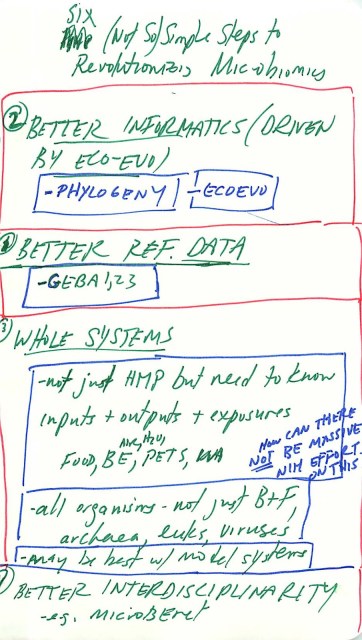 Six
(Not So) Simple Steps to
Revolutionizing Microbiomics
② BETTER INFORMATICS (DRIVEN
BY ECO-EVO)
-PHYLOGENY -ECOEVO
① BETTER REF. DATA
-GEBA 1,2,3
③ WHOLE SYSTEMS
-not just HMP but need to know
inputs + outputs + exposures
Air, H2O,
Food, BE, PETS,
HOW CAN THERE
NOT BE MASSIVE
NIH EFFORT
ON THIS
-all organisms - not just B+F,
archaea, euks, viruses
-may be best w/ model systems
BETTER INTERDISCIPLINARITY
-eg. MicroBEnet